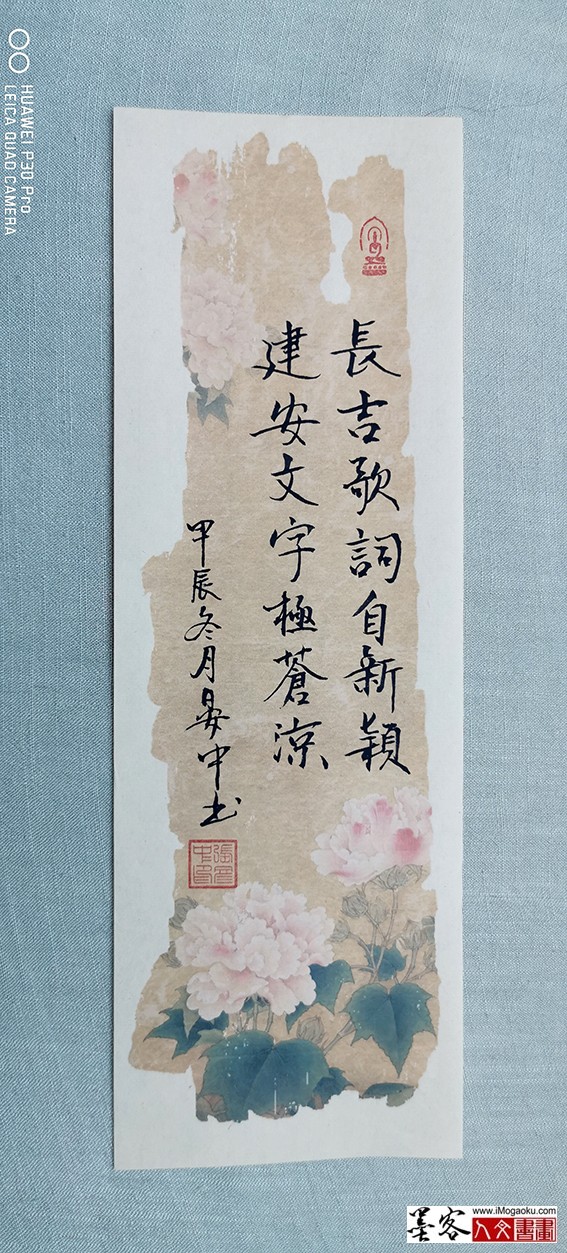 長吉歌詞自新穎
建安文字極蒼涼
甲辰冬月晏中书
HUAWEI P30 Pro
LEICA QUAD CAMERA
墨客
www.iMogaoku.com
人文書畫